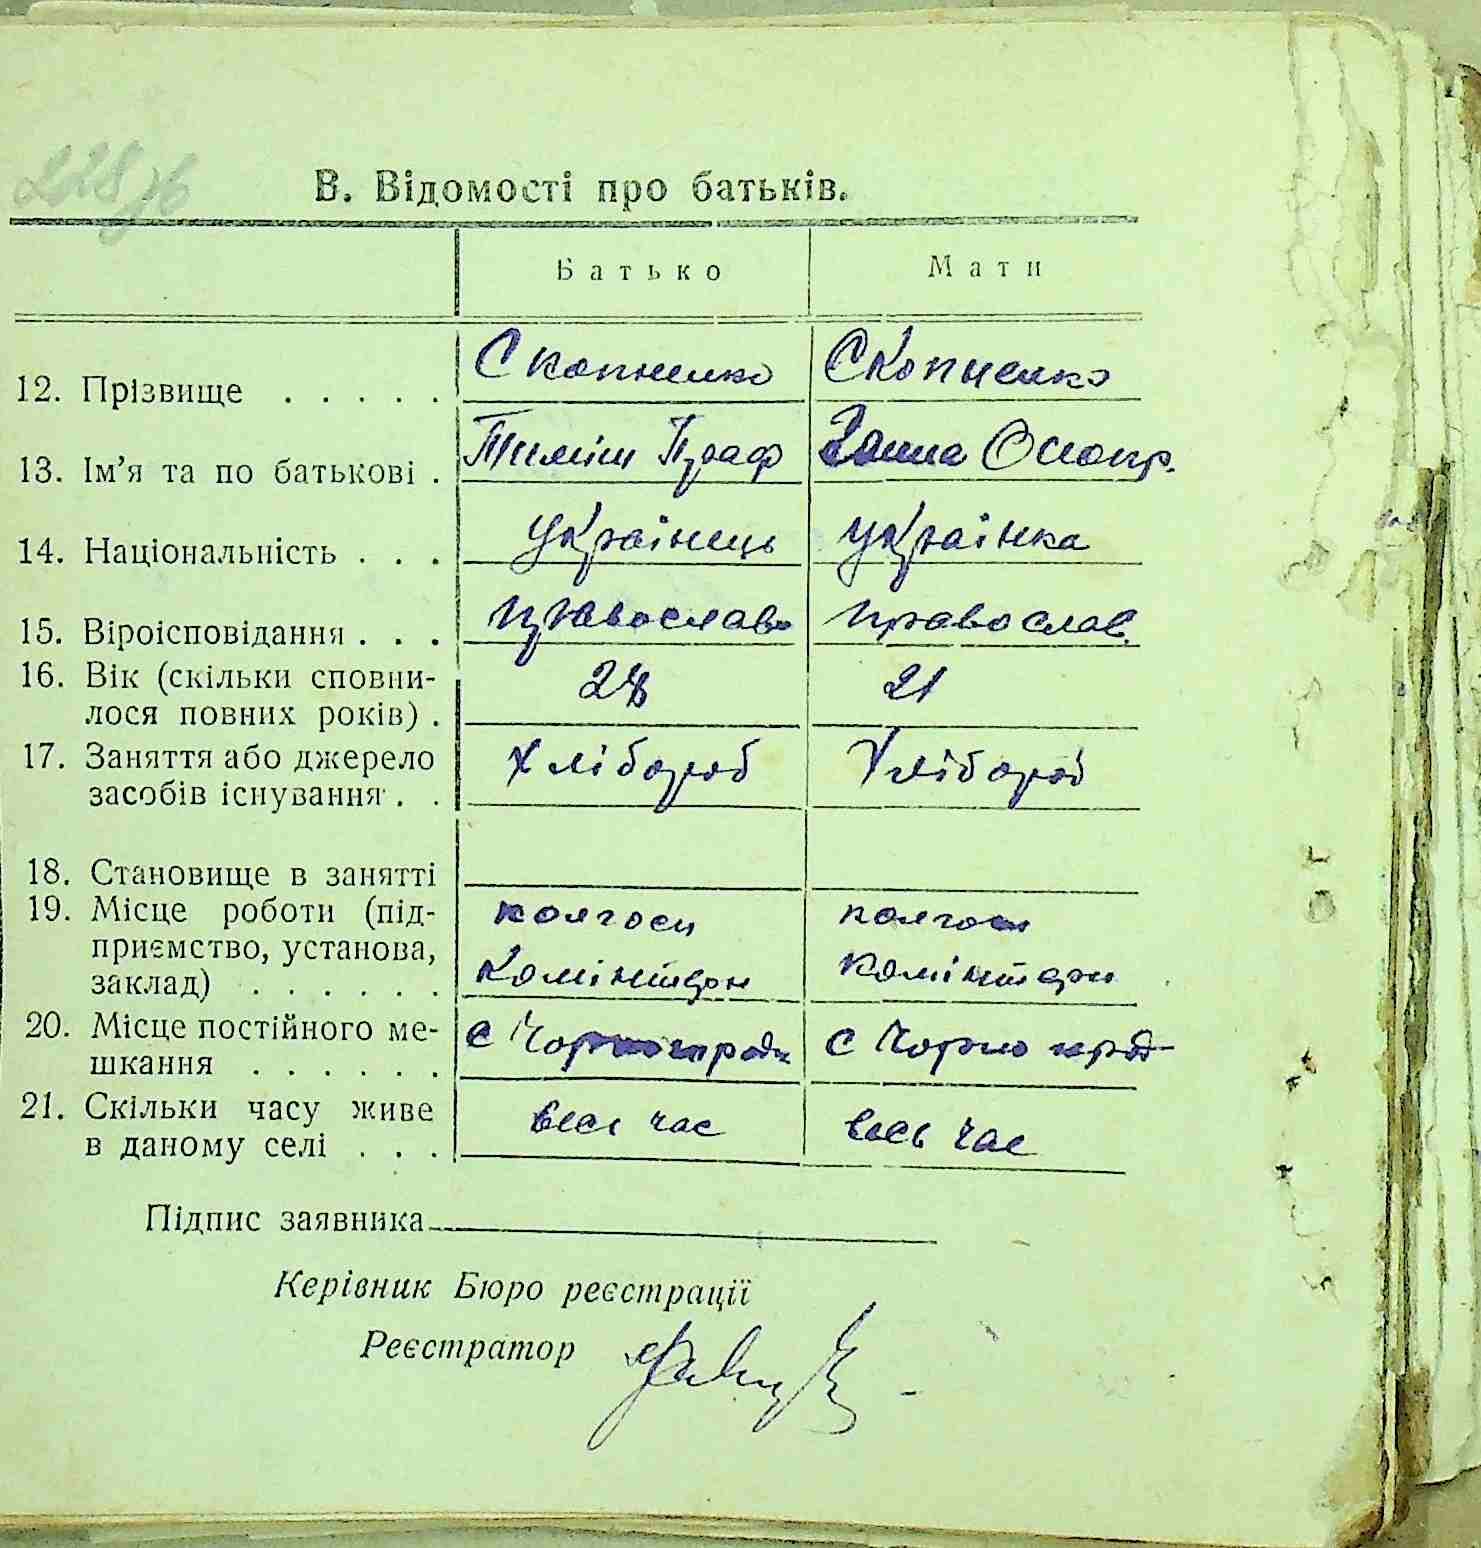 228
В. Відомості про батьків.
Батько Мати
12. Прізвище . . . . . Скопненко Скопненко
13. Ім’я та по батькові . Тиміш Праф Ганна Онопр.
14. Національність . . . українець українка
15. Віроісповідання . . . православ православ.
16. Вік (скільки сповни-
лося повних років) . 28 21
17. Заняття або джерело
засобів існування . . Хлібороб Хлібороб
18. Становище в занятті
19. Місце роботи (під- колгосп колгосп
приємство, установа,
заклад) . . . . . . Комінтерн Комінтерн
20. Місце постійного ме- с с
шкання . . . . . .
21. Скільки часу живе
в даному селі . . . весь час весь час
Підпис заявника
Керівник Бюро реєстрації
Реєстратор